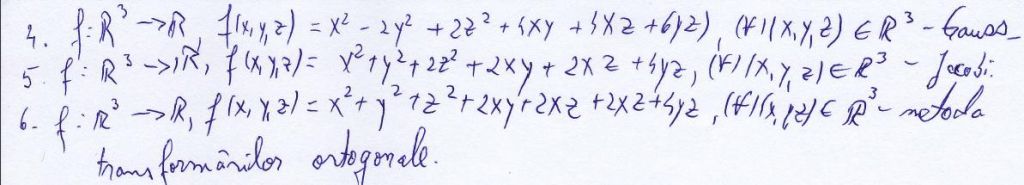 4. f: R³ → R, f(x,y,z) = x² - 2y² + 2z² + 4xy + 4xz + 6yz, (∀)(x,y,z) ∈ R³ - Gauss
5. f: R³ → R, f(x,y,z) = x² + y² + 2z² + 2xy + 2xz + 4yz, (∀)(x,y,z) ∈ R³ - Jacobi.
6. f: R³ → R, f(x,y,z) = x² + y² + z² + 2xy + 2xz + 2xz + 4yz, (∀)(x,y,z) ∈ R³ - metoda
transformărilor ortogonale.